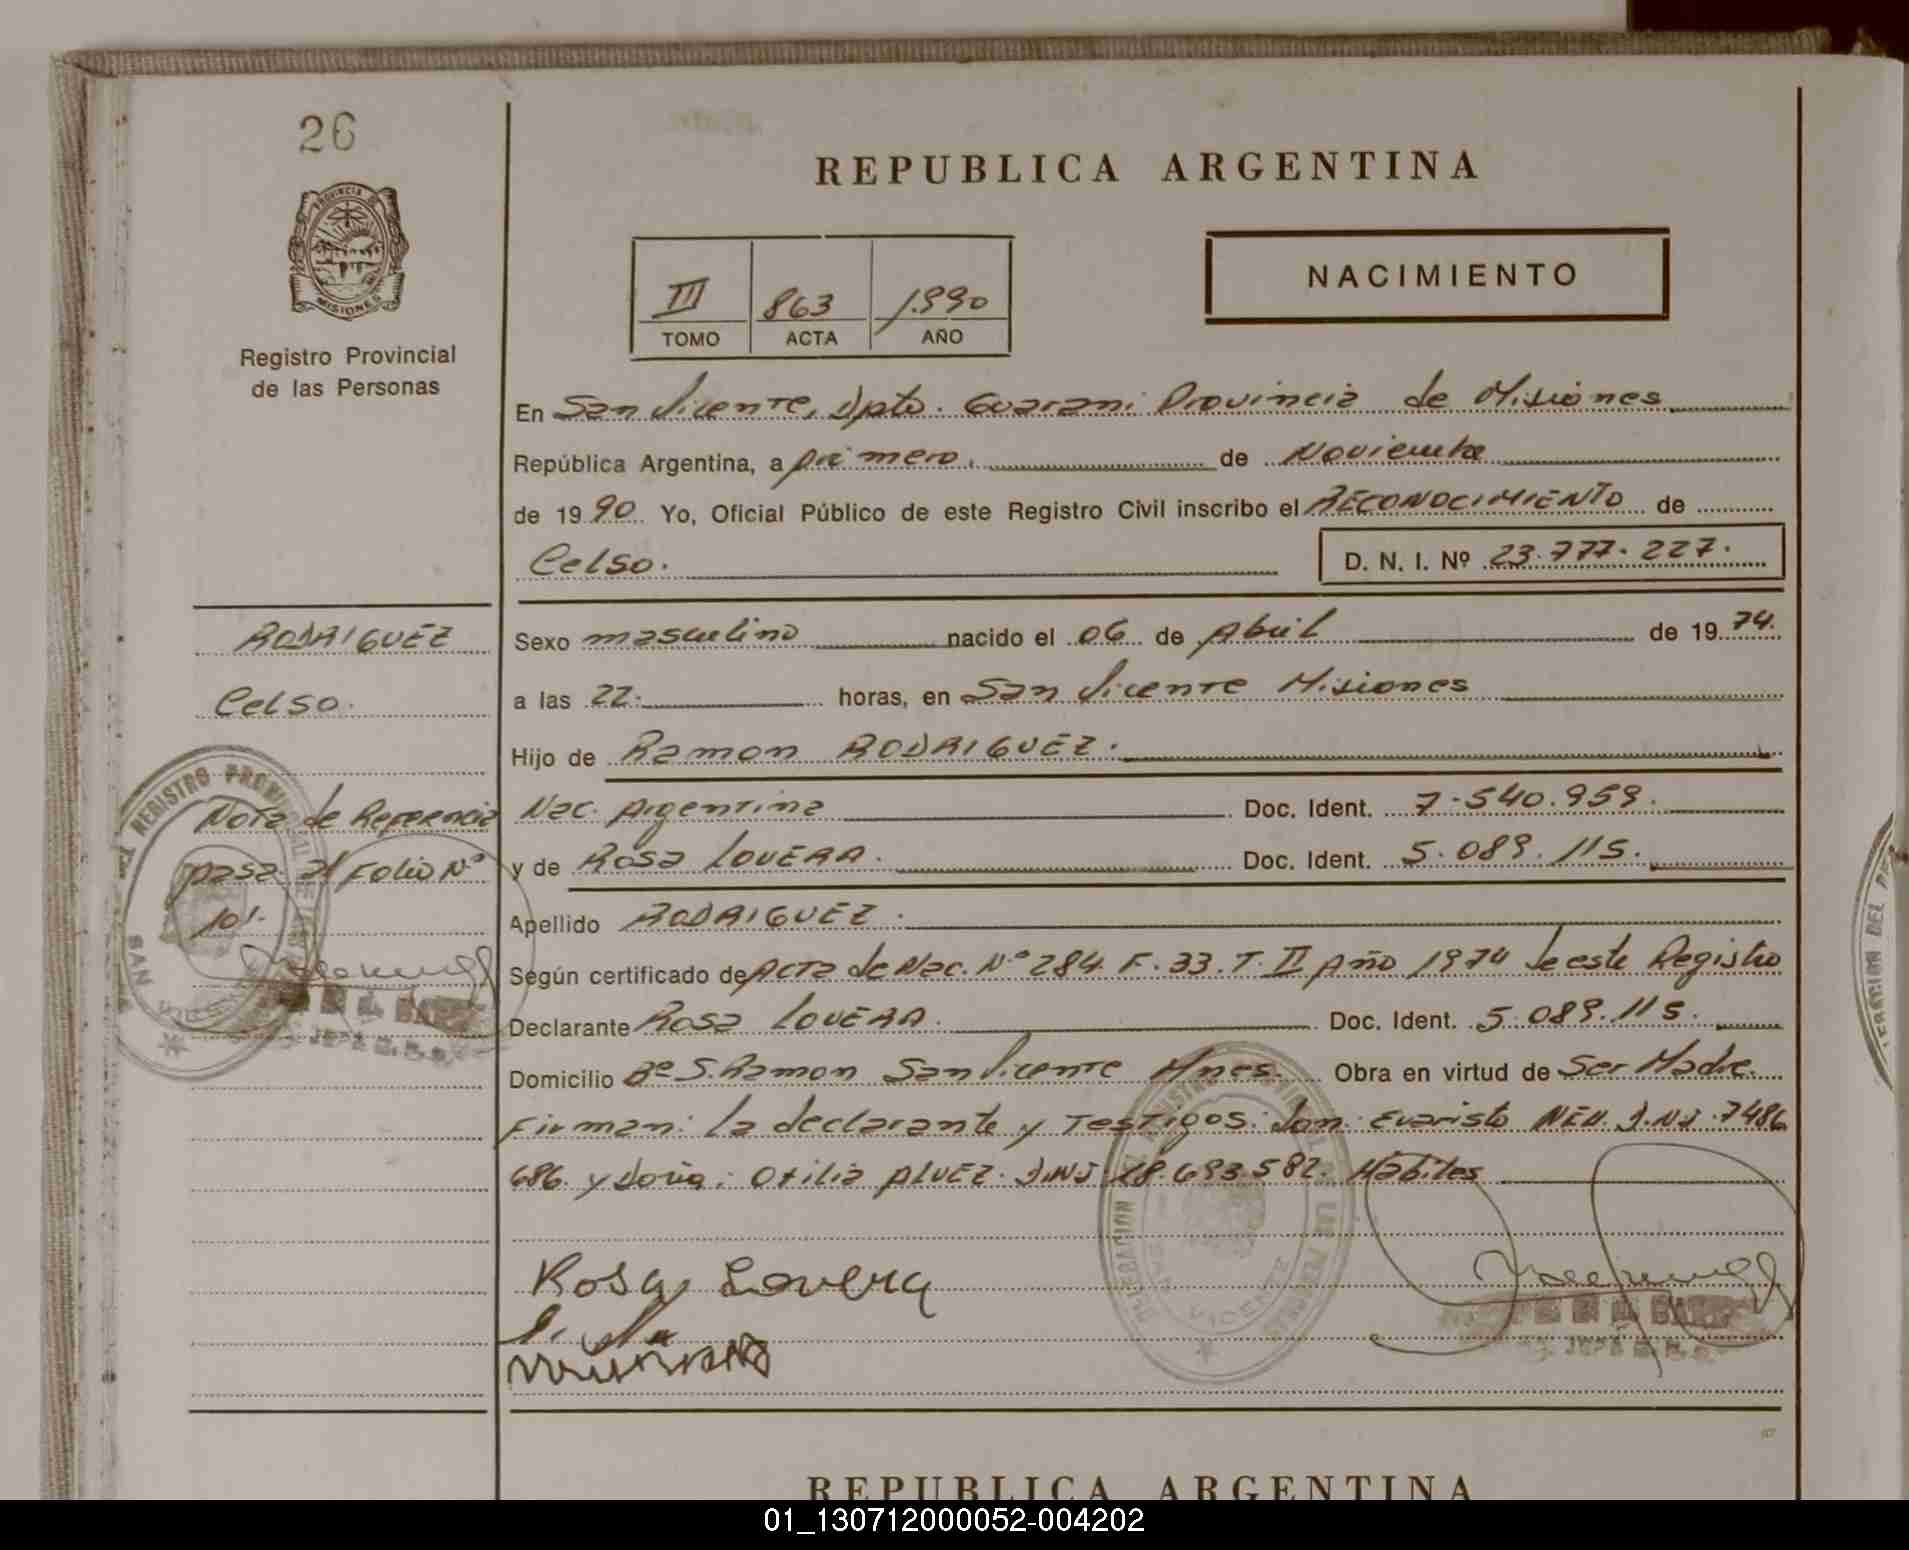 26
PROVINCIA DE
MISIONES
Registro Provincial
de las Personas
REPUBLICA ARGENTINA
III 863 1.990
TOMO ACTA AÑO
NACIMIENTO
En San Vicente, Dpto. Guarani Provincia de Misiones
República Argentina, a primero. de Noviembre
de 1990. Yo, Oficial Público de este Registro Civil inscribo el RECONOCIMIENTO de
Celso. D. N. I. Nº 23.777.227.
RODRIGUEZ
Celso.
Nota de Referencia
pasa al Folio Nº
101.
Sexo masculino nacido el 06 de Abril de 1974.
a las 22. horas, en San Vicente Misiones
Hijo de Ramon RODRIGUEZ.
Nac. Argentina Doc. Ident. 7.540.959.
y de Rosa LOVERA. Doc. Ident. 5.089.115.
Apellido RODRIGUEZ.
Según certificado de Acta de Nac. Nº 284. F. 33. T. II Año 1974 de este Registro
Declarante Rosa LOVERA. Doc. Ident. 5.089.115.
Domicilio Bº S. Ramon San Vicente Mnes. Obra en virtud de Ser Madre.
Firman: La declarante y Testigos: Don: Evaristo NEU. D.N.I. 7486
686. y Doña: Otilia ALVEZ. D.N.I. 18.693.582. Habiles
Rosa Lovera
REPUBLICA ARGENTINA
01_130712000052-004202